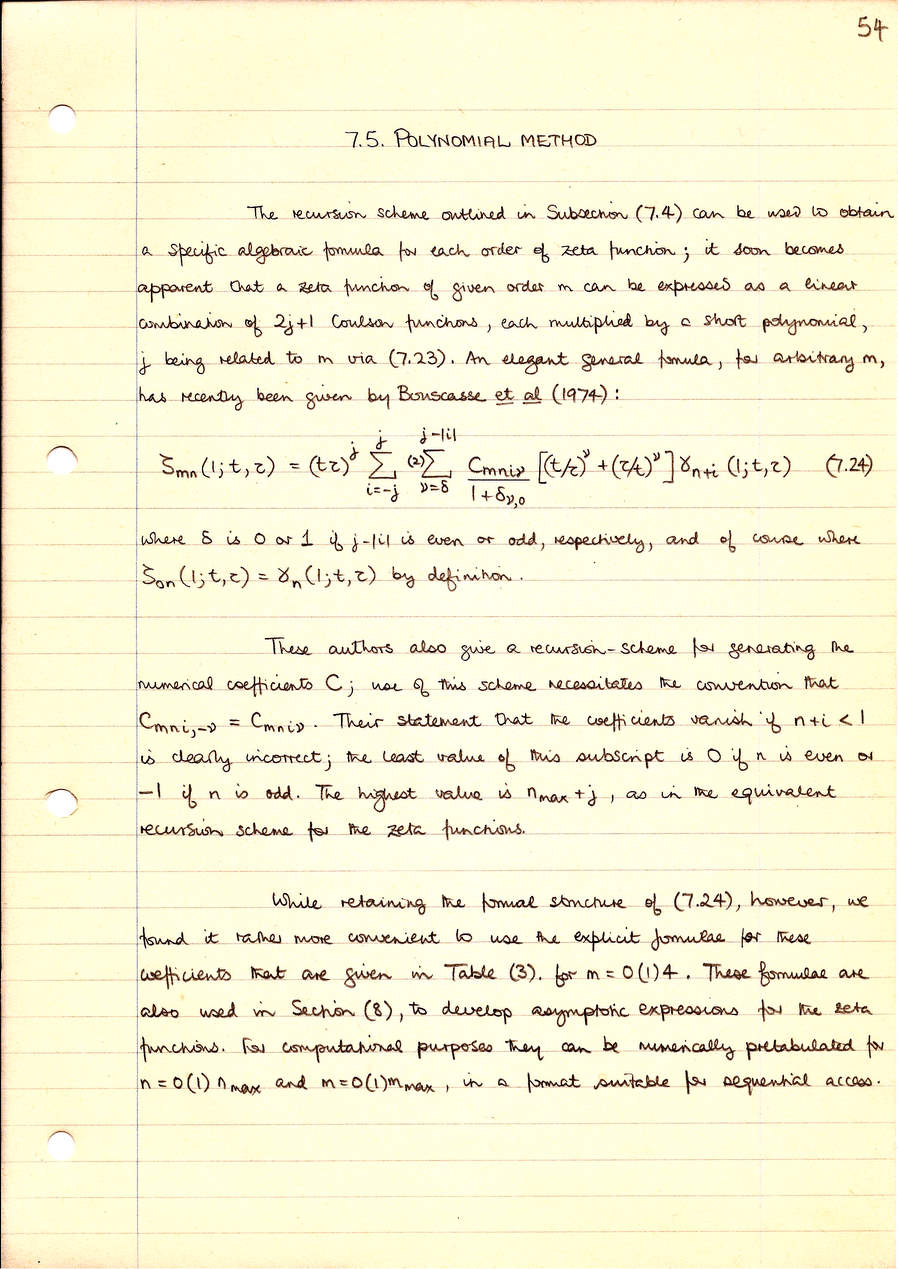 54
7.5. POLYNOMIAL METHOD
The recursion scheme outlined in Subsection (7.4) can be used to obtain
a specific algebraic formula for each order of zeta function; it soon becomes
apparent that a zeta function of given order m can be expressed as a linear
combination of 2j+1 Coulson functions, each multiplied by a short polynomial,
j being related to m via (7.23). An elegant general formula, for arbitrary m,
has recently been given by Bouscasse et al (1974):
ζmn(1;t,τ) = (tτ)^j Σ_{i=-j}^{j} (2)Σ_{ν=δ}^{j-|i|} Cmniν/(1+δν,0) [(t/τ)^ν + (τ/t)^ν] γn+i (1;t,τ) (7.24)
where δ is 0 or 1 if j-|i| is even or odd, respectively, and of course where
ζon(1;t,τ) = γn(1;t,τ) by definition.
These authors also give a recursion-scheme for generating the
numerical coefficients C; use of this scheme necessitates the convention that
Cmni,-ν = Cmniν. Their statement that the coefficients vanish if n+i < 1
is clearly incorrect; the least value of this subscript is 0 if n is even or
-1 if n is odd. The highest value is nmax+j, as in the equivalent
recursion scheme for the zeta functions.
While retaining the formal structure of (7.24), however, we
found it rather more convenient to use the explicit formulae for these
coefficients that are given in Table (3). for m = 0(1)4. These formulae are
also used in Section (8), to develop asymptotic expressions for the zeta
functions. For computational purposes they can be numerically pretabulated for
n = 0(1) nmax and m = 0(1)mmax, in a format suitable for sequential access.